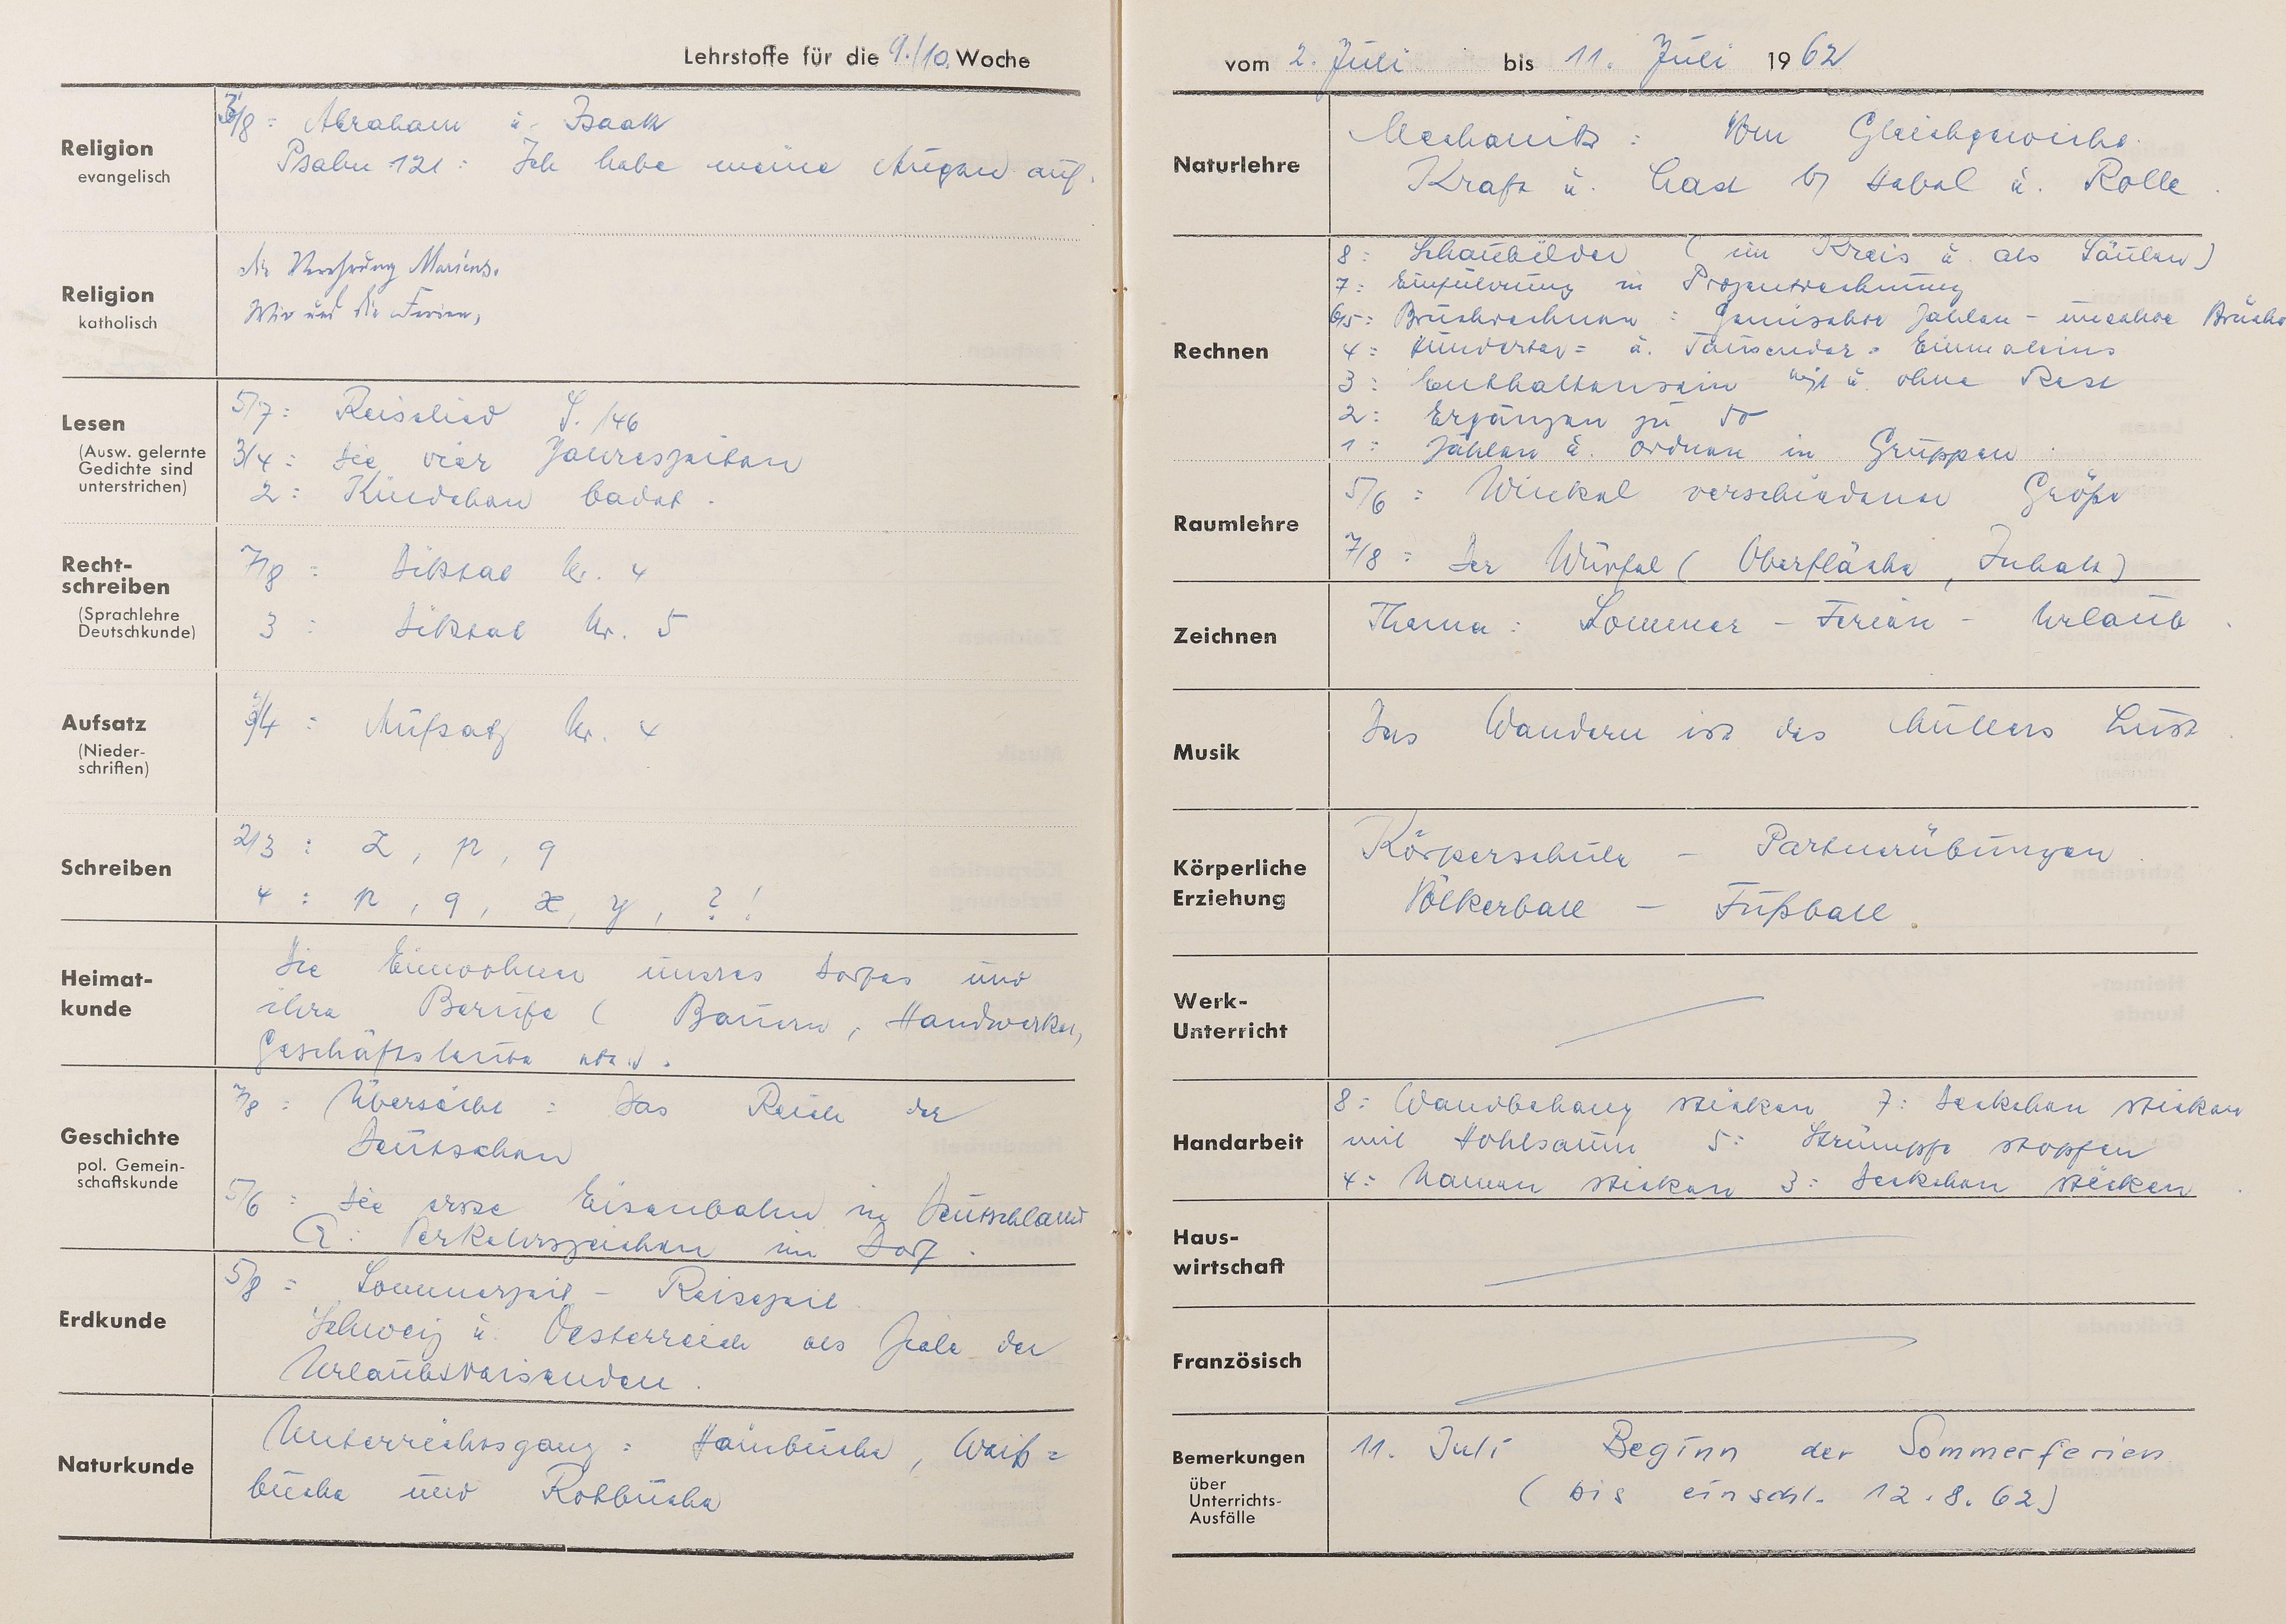 Lehrstoffe für die 9./10. Woche
Religion
evangelisch
3/8 = Abraham u. Isaak
Psalm 121 : Ich habe meine Augen auf.
Religion
katholisch
die Verehrung Mariens.
Wir und die Ferien,
Lesen
(Ausw. gelernte
Gedichte sind
unterstrichen)
5/7 : Reiselied S. 146
3/4 : Die vier Jahreszeiten
2 : Kindchen badet.
Recht-
schreiben
(Sprachlehre
Deutschkunde)
7/8 : Diktat Nr. 4
3 : Diktat Nr. 5
Aufsatz
(Nieder-
schriften)
3/4 : Aufsatz Nr. 4
Schreiben
2/3 : Z, p, q
4 : p, q, x, y, ? !
Heimat-
kunde
Die Einwohner unsres Dorfes und
ihre Berufe ( Bauern, Handwerker,
Geschäftsleute usw.
Geschichte
pol. Gemein-
schaftskunde
7/8 : Übersicht : Das Reich der
Deutschen
5/6 : Die erste Eisenbahn in Deutschland
G : Verkehrszeichen im Dorf.
Erdkunde
5/8 = Sommerzeit - Reisezeit
Schweiz u. Oesterreich als Ziele der
Urlaubsreisenden.
Naturkunde
Unterrichtsgang : Hainbuche, Weiß=
buche und Rotbuche
vom 2. Juli bis 11. Juli 1962
Naturlehre
Mechanik : Vom Gleichgewicht.
Kraft u. Last b/ Hebel u. Rolle.
Rechnen
8 : Schaubilder ( im Kreis u. als Säulen )
7 : Einführung in Prozentrechnung
6/5 : Bruchrechnen : Gemischte Zahlen - unechte Brüche
4 : Hunderter= u. Tausender= Einmaleins
3 : Enthaltensein mit u. ohne Rest
2 : Ergänzen zu 50
1 : Zählen u. ordnen in Gruppen.
Raumlehre
5/6 : Winkel verschiedener Größe
7/8 : Der Würfel ( Oberfläche, Inhalt )
Zeichnen
Thema : Sommer - Ferien - Urlaub.
Musik
Das Wandern ist des Müllers Lust.
Körperliche
Erziehung
Körperschule - Partnerübungen.
Völkerball - Fußball.
Werk-
Unterricht
Handarbeit
8 : Wandbehang sticken 7 : Deckchen sticken
mit Hohlsaum 5 : Strümpfe stopfen
4 : Namen sticken 3 : Deckchen sticken.
Haus-
wirtschaft
Französisch
Bemerkungen
über
Unterrichts-
Ausfälle
11. Juli Beginn der Sommerferien
( bis einschl. 12.8.62 )